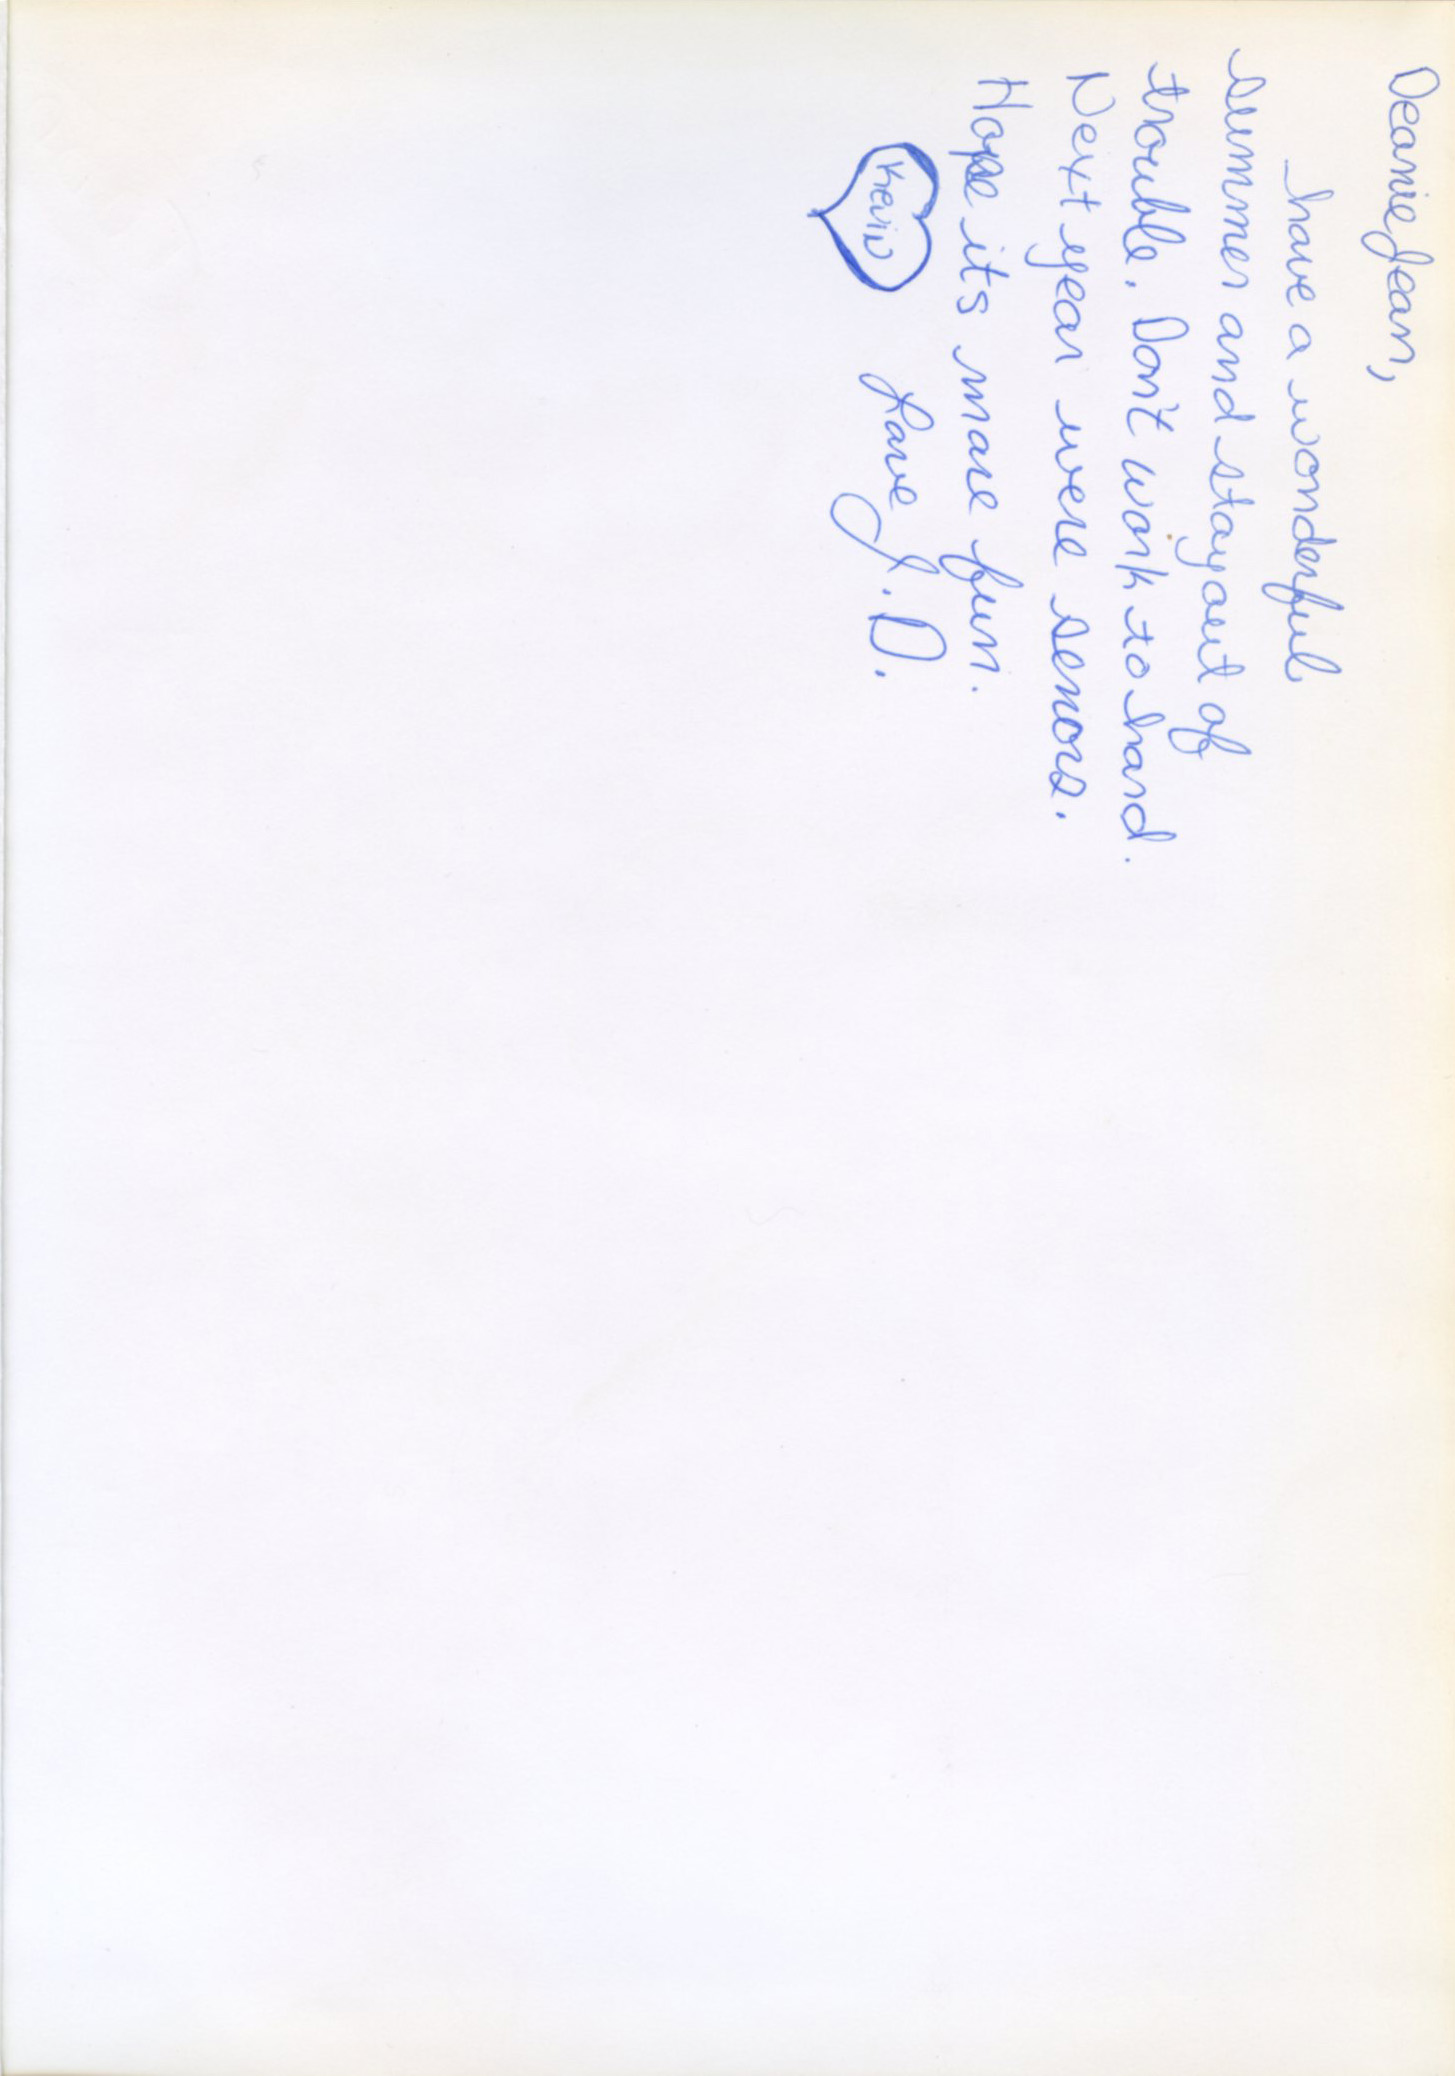 Deanie Jean,
have a wonderful
summer and stay out of
trouble. Don't work to hard.
Next year were senors.
Hope its more fun.
Kevin Love J.D.